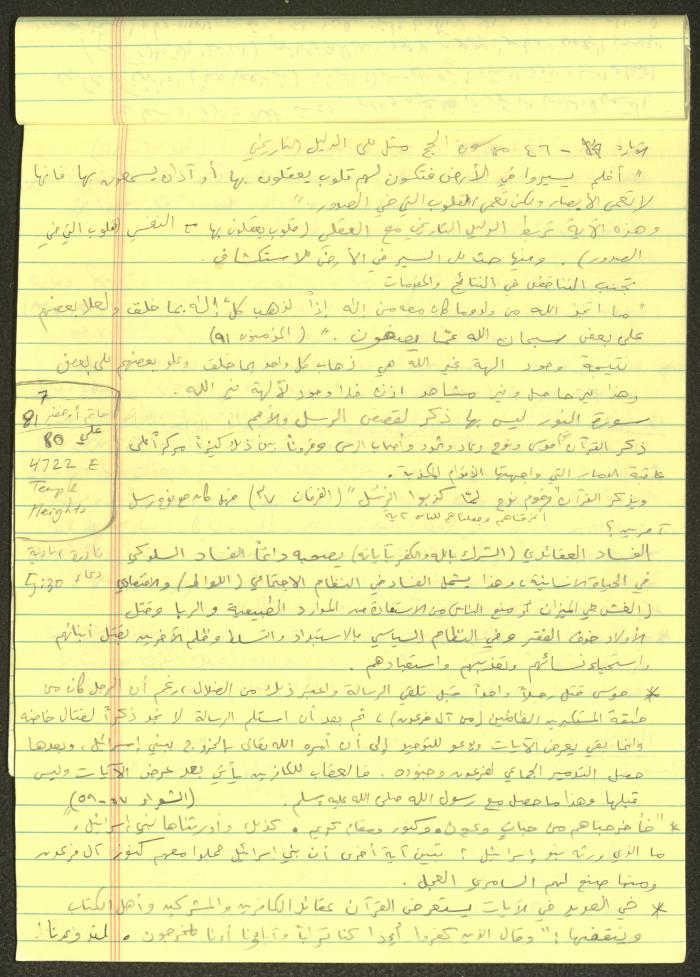 ٤٦ من سورة الحج مثل على الدليل التاريخي
" أفلم يسيروا في الأرض فتكون لهم قلوب يعقلون بها أو آذان يسمعون بها فانها
لا تعمى الأبصار ولكن تعمى القلوب التي في الصدور . "
وهذه الآية تربط الدليل التاريخي مع العقلي ( قلوب يعقلون بها مع النفس القلوب التي في
الصدور ) . وفيها حث على السير في الأرض للاستكشاف .
تجنب التناقض في النتائج والمقدمات
" ما اتخذ الله من ولد وما كان معه من إله إذاً لذهب كل إله بما خلق ولعلا بعضهم
على بعض سبحان الله عمّا يصفون . " ( المؤمنون ٩١ )
نتيجة وجود الهة غير الله هي ذهاب كل واحد بما خلق وعلو بعضهم على بعض
وهذا غير حاصل وغير مشاهد اذن فلا وجود لآلهة غير الله .
سورة النور ليس بها ذكر لقصص الرسل والأمم .
ذكر القرآن موسى ونوح وعاد وثمود وأصحاب الرس وقروناً بين ذلك كثيراً مركزاً على
عاقبة الدمار التي واجهتها الأقوام المكذبة .
ويذكر القرآن " وقوم نوح لمّا كذبوا الرسل " ( الفرقان ٣٧ ) فهل كان مع نوح رسل
أغرقناهم وجعلناهم للناس آية
آخرين ؟
الفساد العقائدي ( الشرك بالله والكفر بآياته ) يصحبه دائماً الفساد السلوكي
في الحياة الانسانية ، وهذا يشمل الفساد في النظام الاجتماعي ( اللواط ) والاقتصادي
( الغش في الميزان أو منع الناس من الاستفادة من الموارد الطبيعية والربا وقتل
الأولاد خوف الفقر وفي النظام السياسي بالاستبداد والتسلط وظلم الآخرين بقتل أبنائهم
واستحياء نسائهم وتعذيبهم واستعبادهم .
* موسى قتل رجلاً واحداً قبل تلقي الرسالة واعتبر ذلك من الضلال ، رغم أن الرجل كان من
طبقة المستكبرين الظالمين ( من آل فرعون ) ، ثم بعد أن استلم الرسالة لا نجد ذكراً لقتال خاضه
وانما بقي يعرض الآيات ويدعو للتوحيد إلى أن أمره الله تعالى بالخروج ببني إسرائيل ، وبعدها
حصل التدمير الجماعي لفرعون وجنوده . فالعقاب للكافرين يأتي بعد عرض الآيات وليس
قبلها وهذا ما حصل مع رسول الله صلى الله عليه وسلم . ( الشعراء ٥٧ - ٥٩ )
* " فأخرجناهم من جنات وعيون . وكنوز ومقام كريم . كذلك وأورثناها بني إسرائيل . "
ما الذي ورثه بنو إسرائيل ؟ تبين آية أخرى أن بني إسرائيل حملوا معهم كنوز آل فرعون
ومنها صنع لهم السامري العجل .
* في العديد من الآيات يستعرض القرآن عقائد الكافرين والمشركين وأهل الكتاب
وينقضها : " وقال الذين كفروا أءذا كنا تراباً وآباؤنا أئنا لمخرجون . لقد وعدنا
7
علي
81
80
4722 E
Temple
Heights
5:30